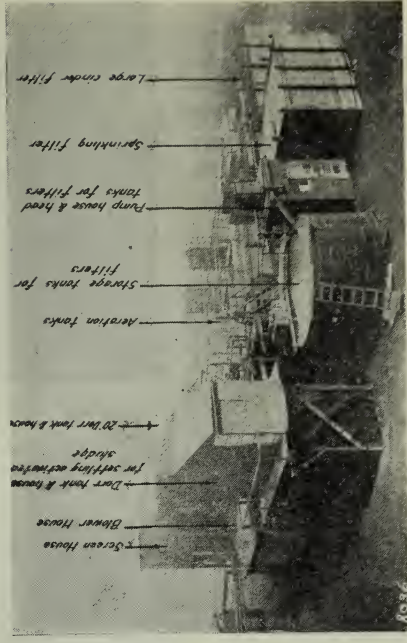 Screen House
Blower House
Dorr tank & house
for settling activated
sludge
20' Dorr tank & house
Aeration tanks
Storage tanks for
filters
Pump house & head
tanks for filters
Sprinkling filter
Large cinder filter